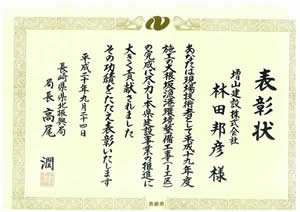 表彰状
増山建設株式会社
林田邦彦 様
あなたは現場技術者として平成十九年度
施工の大根坂漁港環境整備工事(1工区)
の完成に尽力し本県建設事業の推進に
大きく貢献されました
その功績をたたえ表彰いたします
平成二十年九月二十四日
長崎県県北振興局
局長 高尾 潤